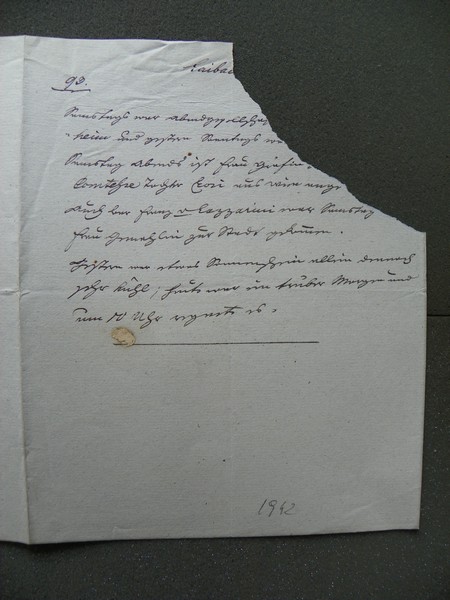 Laibac
93.
Samstags war Abendgesellschaf
heim und gestern Sonntags wa
Samstag Abends ist Frau Gräfin
Comtesse Tochter aus Wien ange
Auch Bar Franz v Lazzarini war Samstag
Frau Gemahlin zur Stadt gekommen.
Gestern war etwas Sonnenschein allein dennoch
sehr kühl; heute war ein trüber Morgen und
um 10 Uhr regnete es.
1942